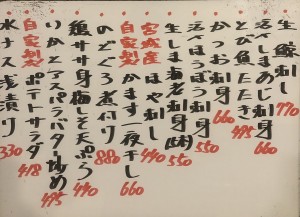 生鯨刺し 770
活〆しまあじ刺身 660
とび魚たたき 495
かつお刺身 660
活〆ほうぼう刺身 550
生しまえび刺身 550
宮城産ほや刺し 440
自家製かます一夜干し 660
のどぐろ煮付け 880
鶏ササ身梅しそ天ぷら 440
いかとアスパラバター炒め 495
自家製ポテトサラダ 418
水ナス浅漬り 330